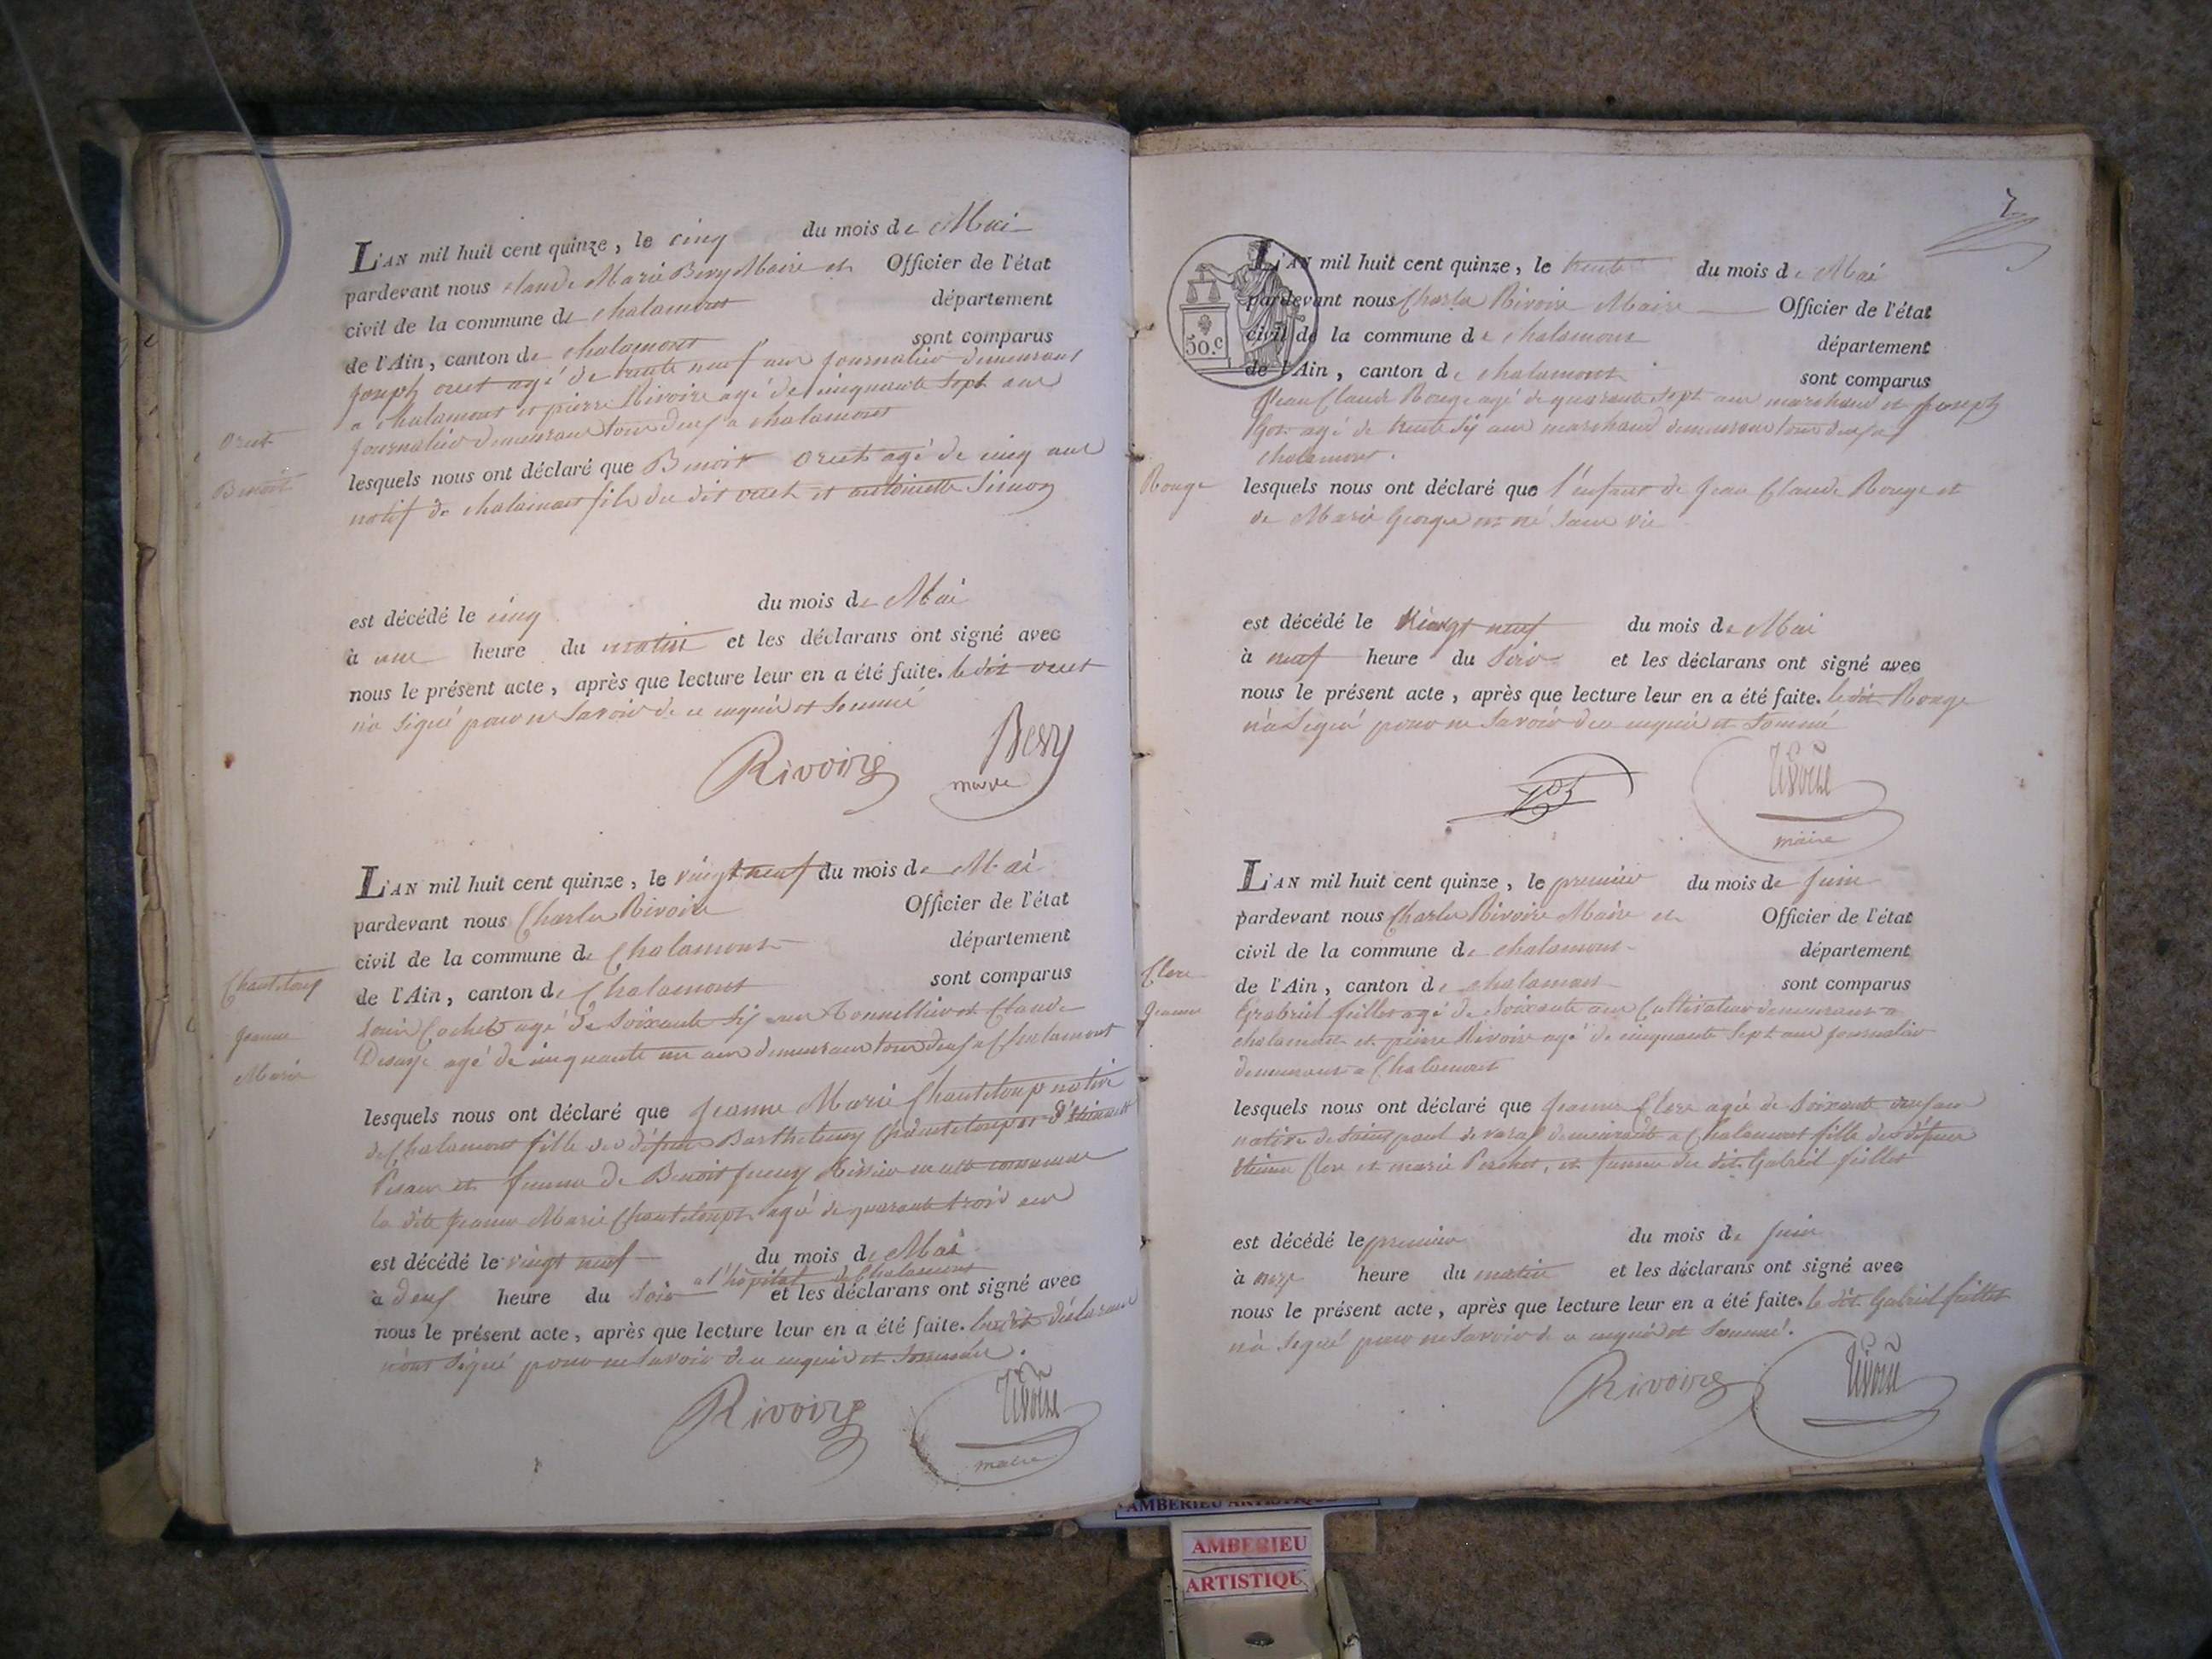 L'AN mil huit cent quinze, le cinq du mois de Mai
pardevant nous Claude Marie Bevy Maire et Officier de l'état
civil de la commune de chalamont département
de l'Ain, canton de chalamont sont comparus
Joseph oret agé de trente neuf ans journalier demeurant
a chalamont et pierre Rivoire agé de cinquante sept ans
journalier demeurant tous deux a chalamont
Benoit
lesquels nous ont déclaré que Benoit agé de cinq ans
natif de chalamont fils du dit et antoinette Simon
est décédé le cinq du mois de Mai
à une heure du matin et les déclarans ont signé avec
nous le présent acte, après que lecture leur en a été faite. le dit
n'a signé pour ne savoir de ce enquis et sommé
Rivoire
maire
L'AN mil huit cent quinze, le vingt neuf du mois de Mai
pardevant nous Charles Rivoire Officier de l'état
civil de la commune de Chalamont département
de l'Ain, canton de Chalamont sont comparus
Chanteloup
Jeanne
Marie
Louis Cochet agé de soixante six ans Tonnellier et Claude
agé de cinquante un ans demeurant tous deux a Chalamont
lesquels nous ont déclaré que Jeanne Marie Chanteloup native
de Chalamont fille de défunt Barthelemy Chanteloup et d'
et femme de Benoit en cette commune
la dite Jeanne Marie Chanteloup agée de quarante trois ans
est décédé le vingt neuf du mois de Mai
a l'hôpital de Chalamont
à deux heure du soir et les déclarans ont signé avec
nous le présent acte, après que lecture leur en a été faite. les dits déclarans
n'ont signé pour ne savoir de ce enquis et sommés.
Rivoire Rivoire
maire
7
50.c
L'AN mil huit cent quinze, le trente du mois de Mai
pardevant nous Charles Rivoire Maire Officier de l'état
civil de la commune de chalamont département
de l'Ain, canton de chalamont sont comparus
Jean Claude Rouge agé de quarante sept ans marchand et Joseph
agé de trente six ans marchand demeurant tous deux a
chalamont.
Rouge
lesquels nous ont déclaré que l'enfant de Jean Claude Rouge et
de Marie George est né sans vie
est décédé le vingt neuf du mois de Mai
à neuf heure du soir et les déclarans ont signé avec
nous le présent acte, après que lecture leur en a été faite. le dit Rouge
n'a signé pour ne savoir de ce enquis et sommé
Rivoire
maire
L'AN mil huit cent quinze, le premier du mois de Juin
pardevant nous Charles Rivoire Maire et Officier de l'état
civil de la commune de chalamont département
de l'Ain, canton de chalamont sont comparus
Clerc
Jeanne
Gabriel fillet agé de soixante ans Cultivateur demeurant a
chalamont et pierre Rivoire agé de cinquante sept ans journalier
demeurant a Chalamont
lesquels nous ont déclaré que Jeanne Clerc agée de soixante deux ans
native de saint paul de varax demeurante a Chalamont fille des défunts
Etienne Clerc et marie et femme du dit Gabriel fillet
est décédé le premier du mois de Juin
à onze heure du matin et les déclarans ont signé avec
nous le présent acte, après que lecture leur en a été faite. le dit Gabriel fillet
n'a signé pour ne savoir de ce enquis et sommé.
Rivoire Rivoire
AMBERIEU ARTISTIQUE
AMBERIEU
ARTISTIQU